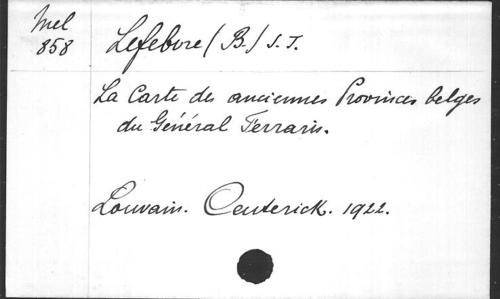 Mel
858
Lefebvre (B.) S.J.
La Carte des anciennes Provinces belges
du Général Ferraris.
Louvain. Ceuterick. 1922.